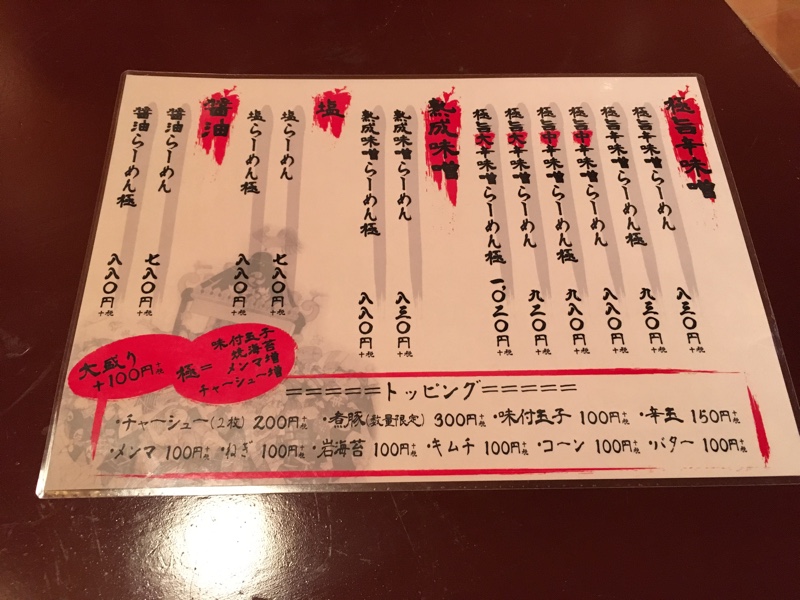 極旨辛味噌
極旨辛味噌らーめん 八三〇円+税
極旨辛味噌らーめん極 九三〇円+税
極旨中辛味噌らーめん 八八〇円+税
極旨中辛味噌らーめん極 九八〇円+税
極旨大辛味噌らーめん 九二〇円+税
極旨大辛味噌らーめん極 一、〇二〇円+税
熟成味噌
熟成味噌らーめん 八三〇円+税
熟成味噌らーめん極 八八〇円+税
塩
塩らーめん 七八〇円+税
塩らーめん極 八八〇円+税
醤油
醤油らーめん 七八〇円+税
醤油らーめん極 八八〇円+税
大盛り
+100円+税
極=
味付玉子
焼海苔
メンマ増
チャーシュー増
=====トッピング=====
・チャーシュー(2枚) 200円+税 ・煮豚(数量限定) 300円+税 ・味付玉子 100円+税 ・辛玉 150円+税
・メンマ 100円+税 ・ねぎ 100円+税 ・岩海苔 100円+税 ・キムチ 100円+税 ・コーン 100円+税 ・バター 100円+税